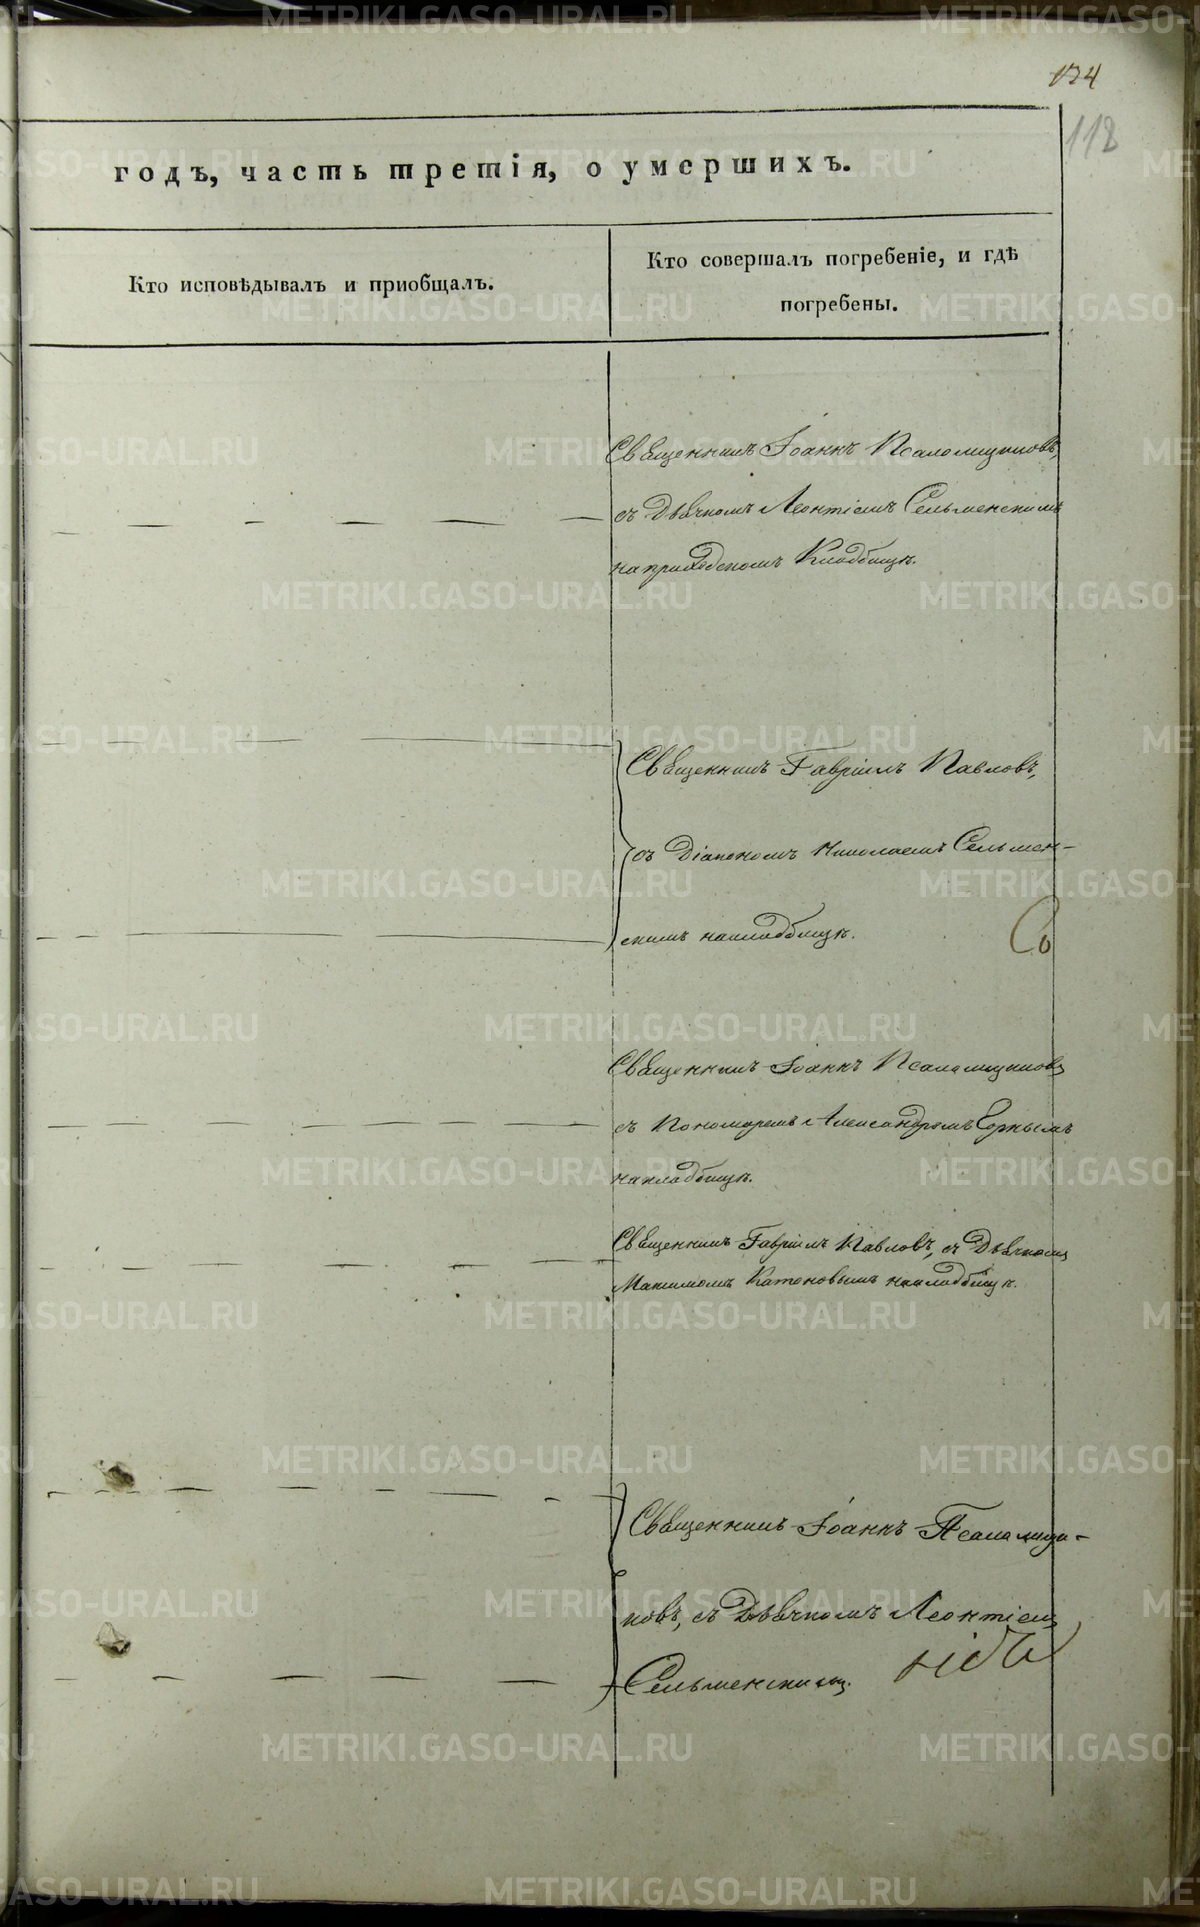 134
118
годъ, часть третія, о умершихъ.
Кто исповѣдывалъ и приобщалъ.
Кто совершалъ погребеніе, и гдѣ
погребены.
Священникъ Іоаннъ Псаломщиковъ,
съ Дьячкомъ Леонтіемъ Сельменскимъ
на приходскомъ Кладбищѣ.
Священникъ Гавріилъ Павловъ,
съ Діакономъ Николаемъ Сельмен-
скимъ на кладбищѣ.
Со
Священникъ Іоаннъ Псаломщиковъ
съ Пономаремъ Александромъ
на кладбищѣ.
Священникъ Гавріилъ Павловъ, съ Дьячкомъ
Максимомъ Катоновымъ на кладбищѣ.
Священникъ Іоаннъ Псаломщи-
ковъ, съ Дьячкомъ Леонтіемъ
Сельменскимъ.
METRIKI.GASO-URAL.RU